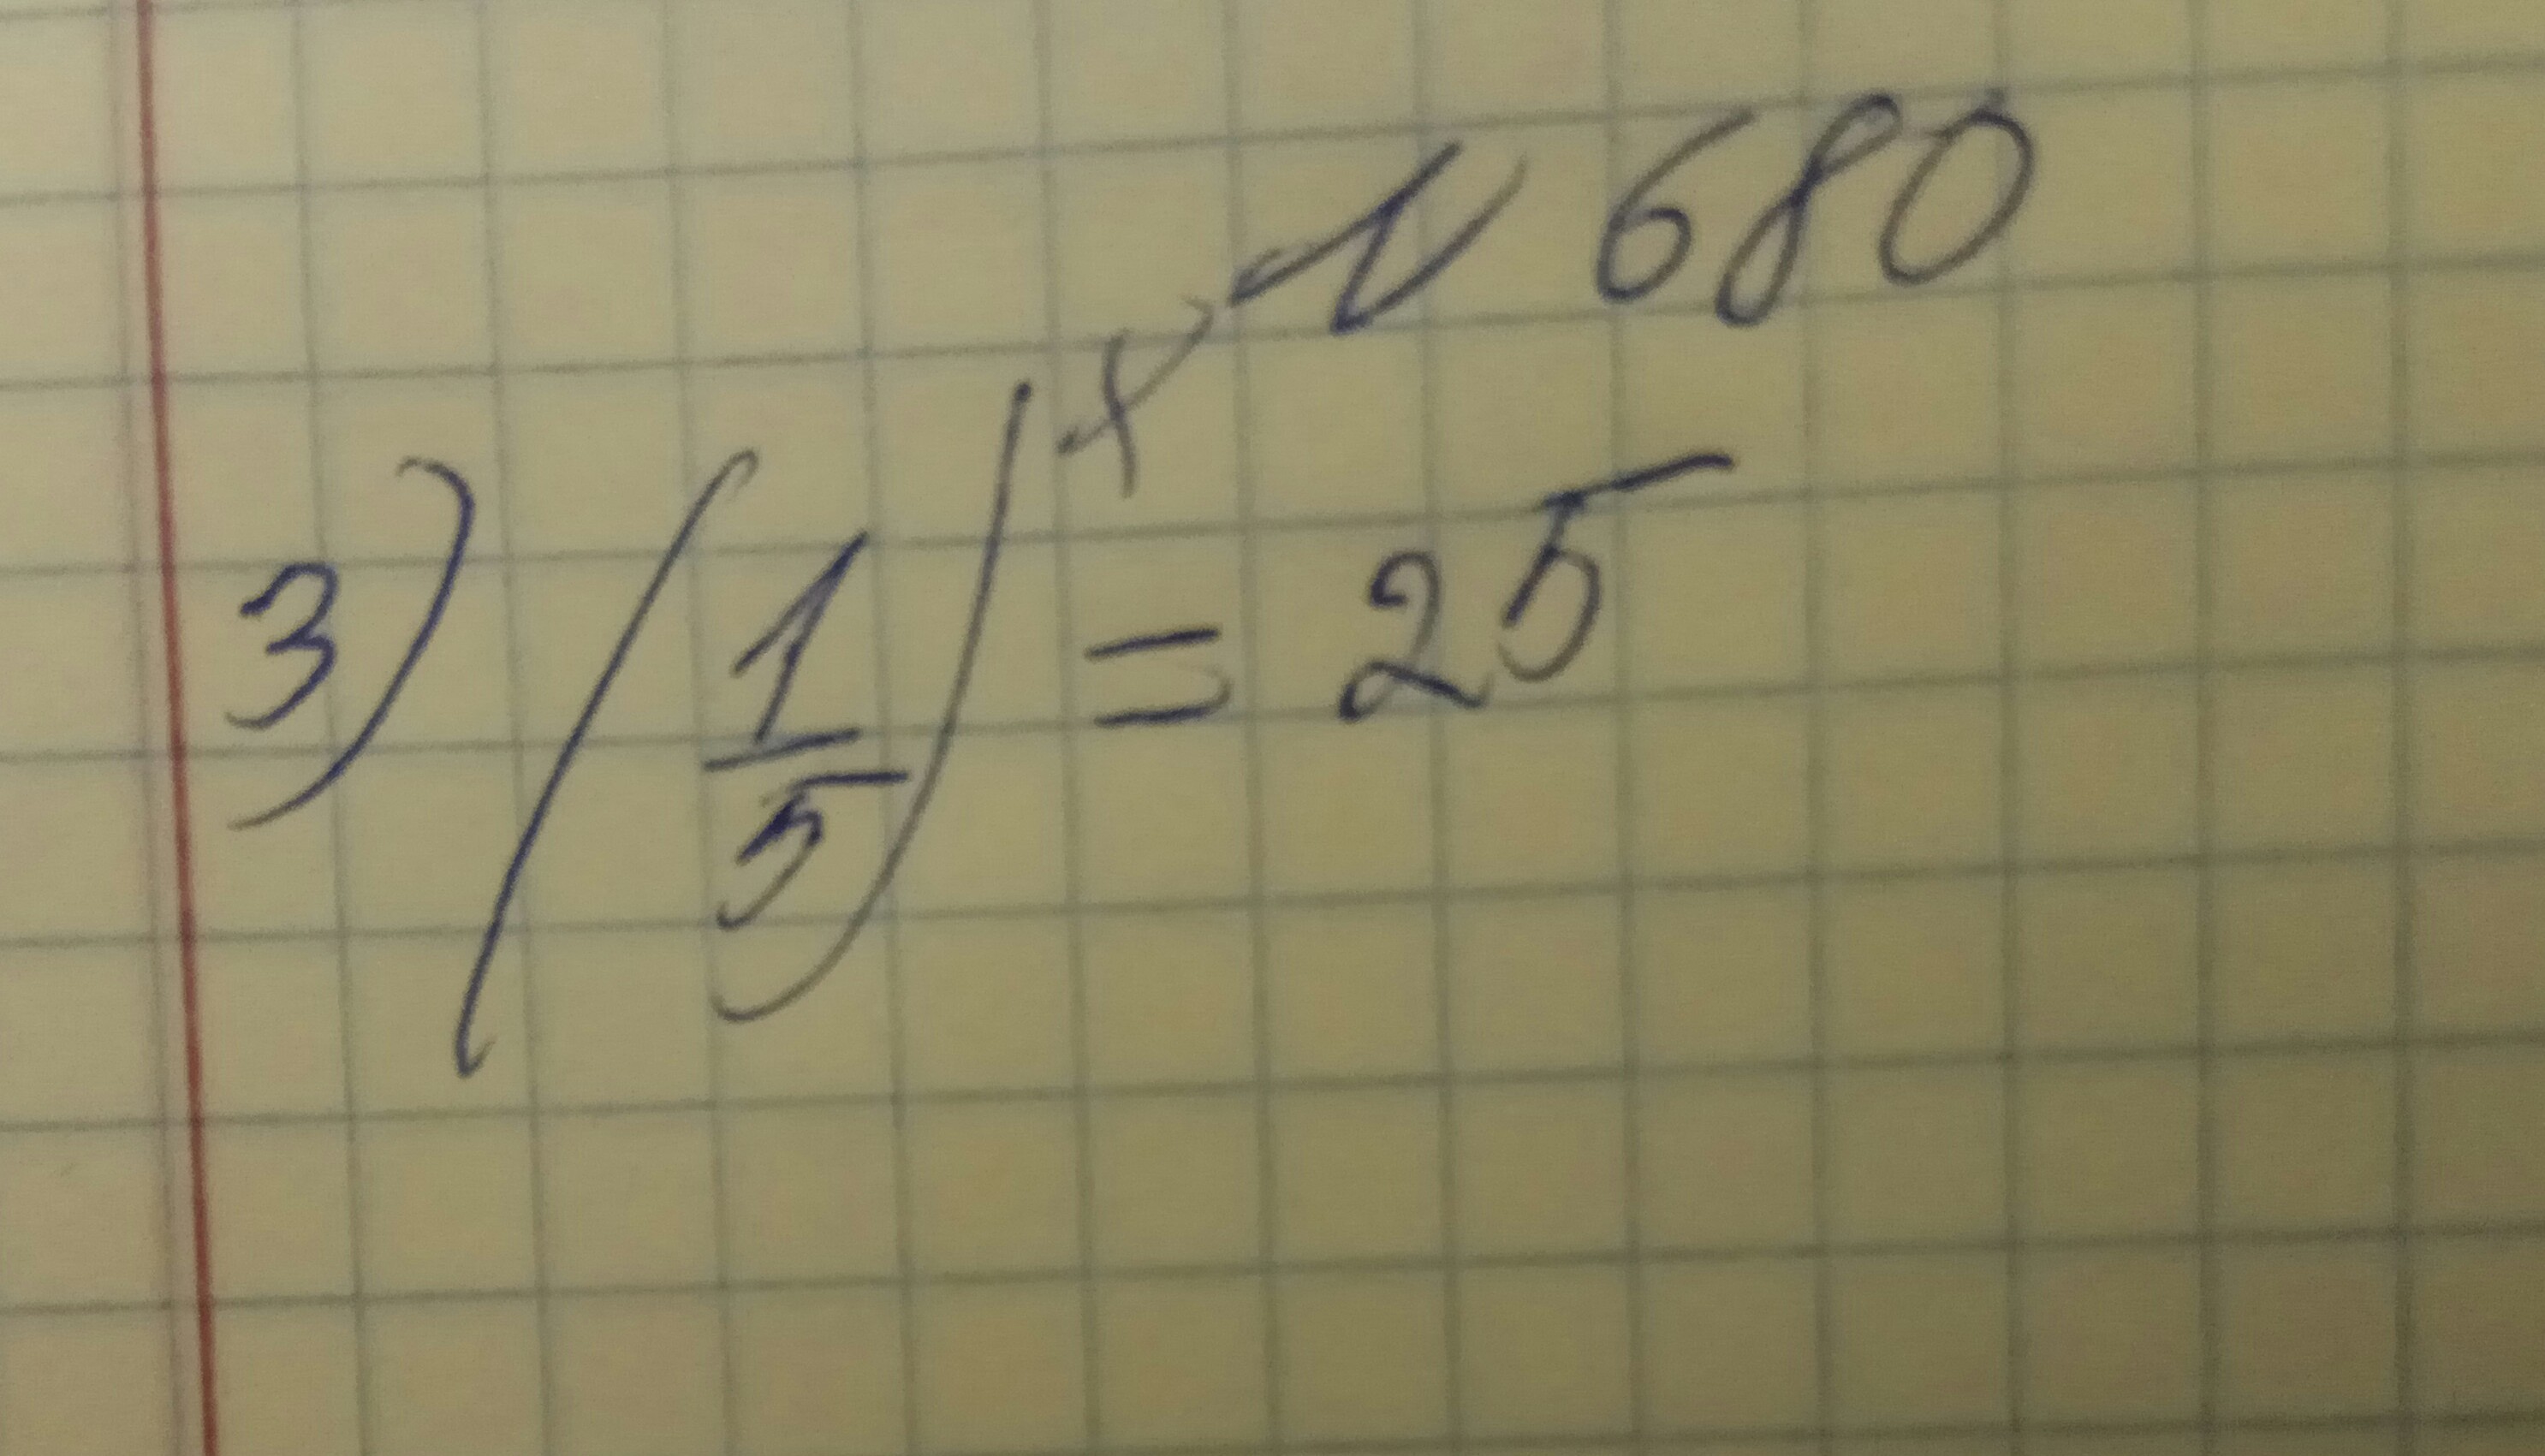 № 680
3) (1/5)^x = 25